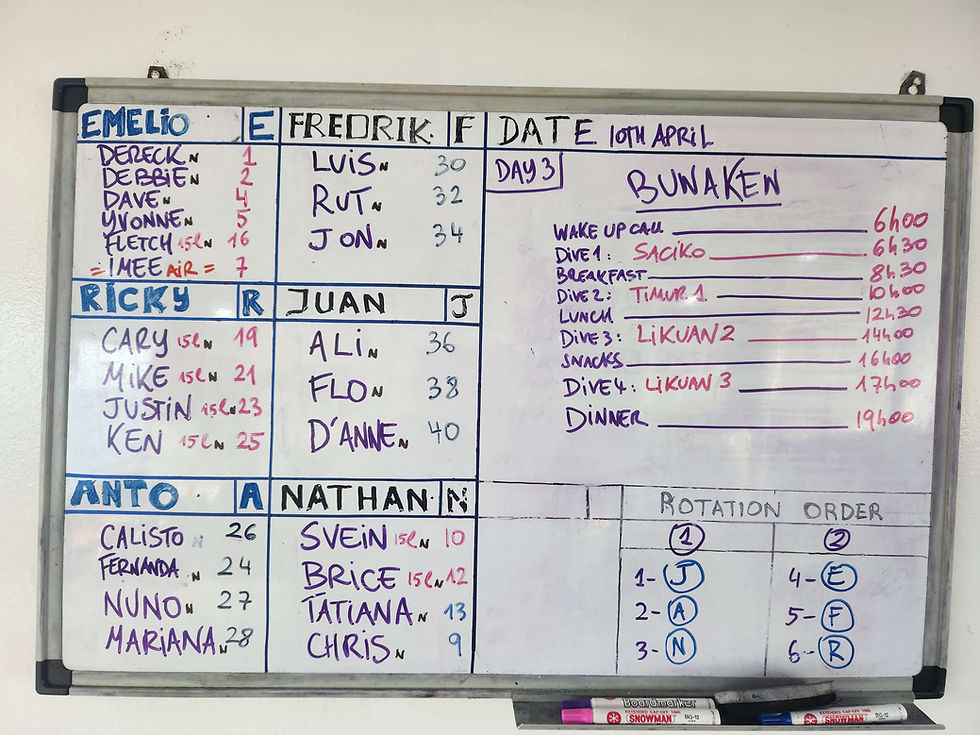 EMELIO E
DERECK N 1
DEBBIE N 2
DAVE N 4
YVONNE N 5
FLETCH 15L N 16
= IMEE AIR = 7
RICKY R
CARY 15L N 19
MIKE 15L N 21
JUSTIN 15L N 23
KEN 15L N 25
ANTO A
CALISTO N 26
FERNANDA N 24
NUNO N 27
MARIANA N 28
FREDRIK. F
LUIS N 30
RUT N 32
JON N 34
JUAN J
ALI N 36
FLO N 38
D'ANNE N 40
NATHAN N
SVEIN 15L N 10
BRICE 15L N 12
TATIANA N 13
CHRIS N 9
DATE 10TH APRIL
DAY 3
BUNAKEN
WAKE UP CALL 6h00
DIVE 1: SACIKO 6h30
BREAKFAST 8h30
DIVE 2: TIMUR 1 10h00
LUNCH 12h30
DIVE 3: LIKUAN 2 14h00
SNACKS 16h00
DIVE 4: LIKUAN 3 17h00
DINNER 19h00
ROTATION ORDER
1 2
1- J 4- E
2- A 5- F
3- N 6- R
Boardmarker
EXTENDED CAP-OFF TIME
SNOWMAN BG-12
EXTENDED CAP-OFF TIME
SNOWMAN BG-12